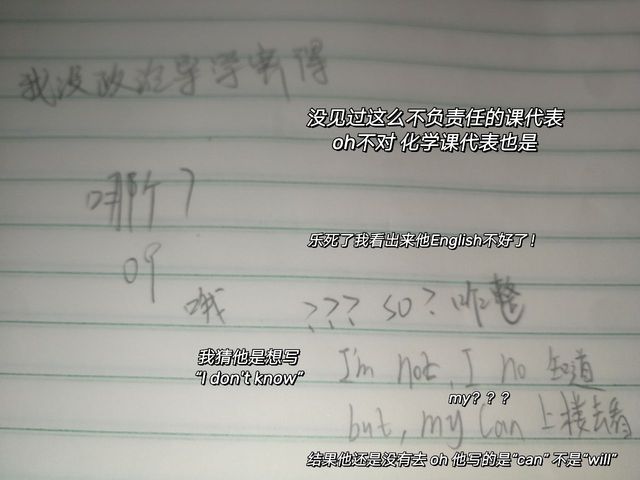 我没政治导学案得
没见过这么不负责任的课代表
oh不对 化学课代表也是
哪个？
乐死了我看出来他English不好了！
09
哦 ？？？ so？咋整
我猜他是想写
“I don't know”
I'm not, I no 知道
my？？？
but, my can 上楼去看
结果他还是没有去 oh 他写的是“can” 不是“will”